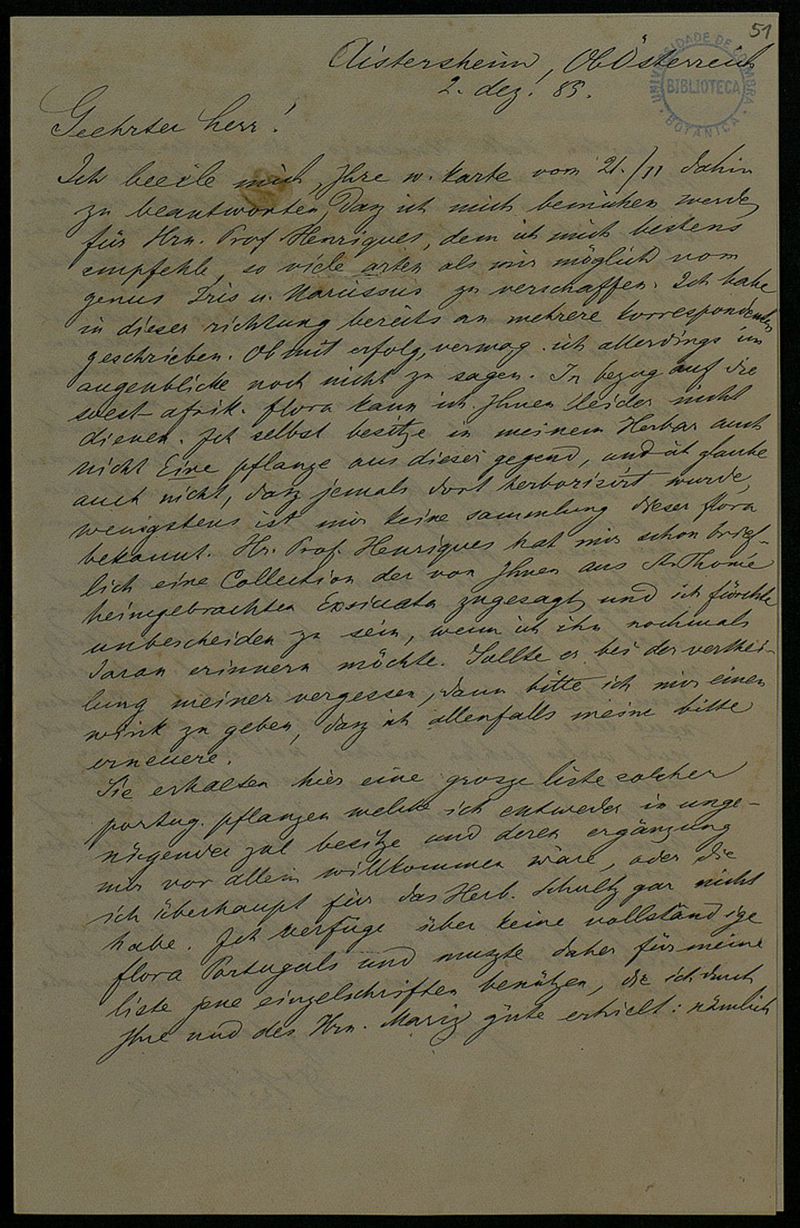 51
UNIVERSIDADE DE COIMBRA
BIBLIOTECA
BOTANICA
Aistersheim, ObÖsterreich
2. dez! 85.
Geehrter herr!
Ich beeile mich, Ihre w. karte vom 21./11 dahin
zu beantworten, dasz ich mich bemühen werde,
für Hrn. Prof Henriques, dem ich mich bestens
empfehle, so viele arten als mir möglich vom
genus Iris u. Narcissus zu verschaffen. Ich habe
in dieser richtung bereits an mehrere korrespondenten
geschrieben. Ob mit erfolg, vermag ich allerdings im
augenblicke noch nicht zu sagen. In bezug auf die
west-afrik. flora kann ich Ihnen leider nicht
dienen. Ich selbst besitze in meinem Herbar auch
nicht Eine pflanze aus dieser gegend, und ich glaube
auch nicht, dasz jemals dort herborisirt wurde,
wenigstens ist mir keine sammlung dieser flora
bekannt. Hr. Prof. Henriques hat mir schon brief-
lich eine Collection der von Ihnen aus St. Thomé
heimgebrachten Exsiccata zugesagt, und ich fürchte
unbescheiden zu sein, wenn ich ihn nochmals
daran erinnern möchte. Sollte er bei der verthei-
lung meiner vergessen, dann bitte ich mir einen
wink zu geben, dasz ich allenfalls meine bitte
erneuere.
Sie erhalten hier eine grosze liste solcher
portug. pflanzen welche ich entweder in unge-
nügender zal besitze und deren ergänzung
mir vor allem willkommen wäre, oder die
ich überhaupt für das Herb. Schultz gar nicht
habe. Ich verfüge über keine vollständige
flora Portugals und muszte daher für meine
liste jene einzelschriften benützen, die ich durch
Ihre und des Hrn. Mariz güte erhielt: nämlich